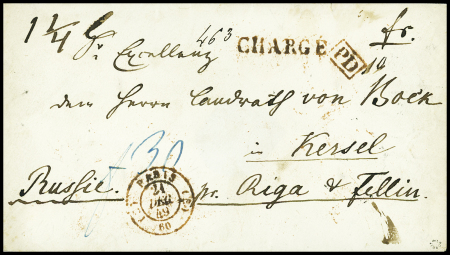 1 1/4 Sr Excellenz 463 CHARGÉ PD fr.
dem Herrn Landrath von Bock
in Kersel
30
Russie. pr. Riga & Fellin.
PARIS
21
DEC
49
(60)